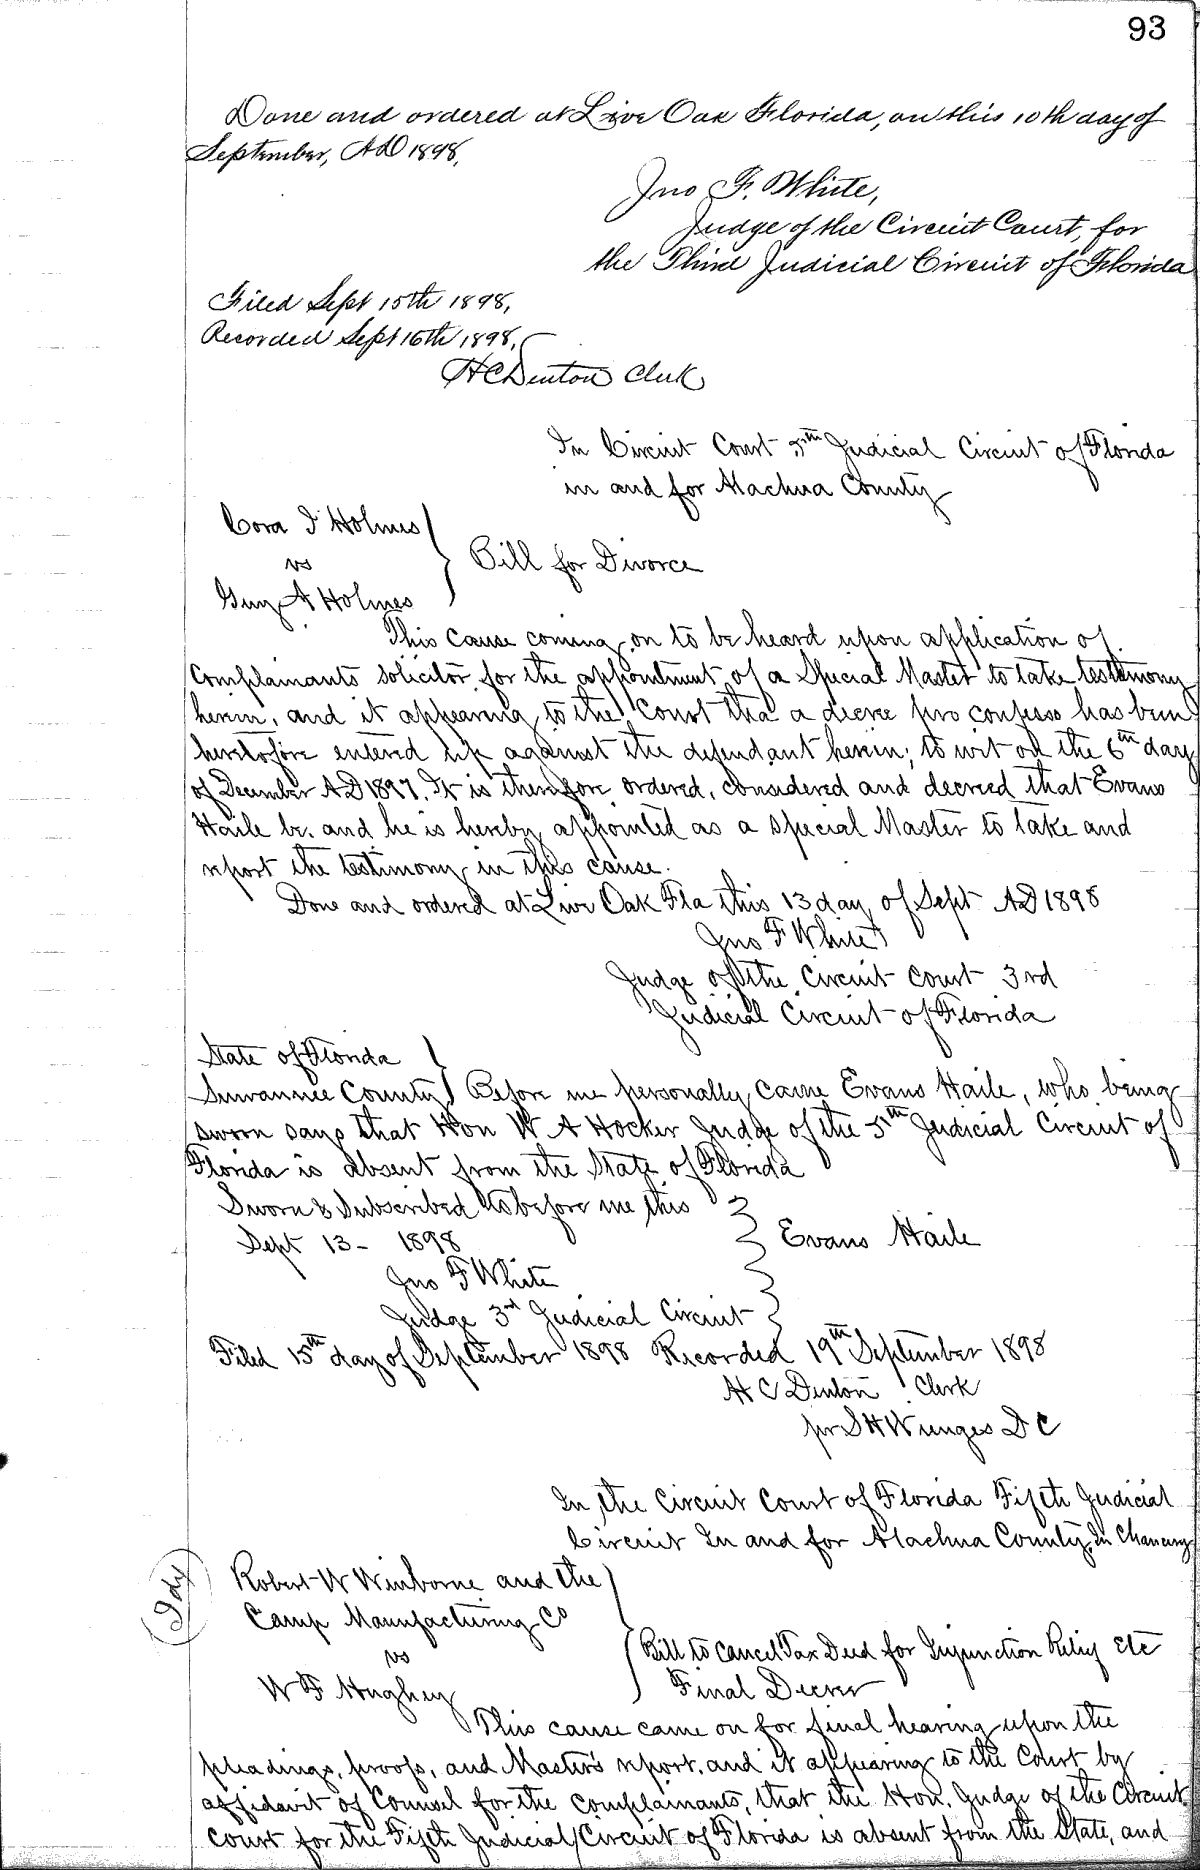 93
Done and ordered at Live Oak Florida, on this 10th day of
September, AD 1898,
Jno F. White,
Judge of the Circuit Court, for
the Third Judicial Circuit of Florida
Filed Sept 15th 1898,
Recorded Sept 16th 1898,
H C Denton Clerk
In Circuit Court 5th Judicial Circuit of Florida
in and for Alachua County
Cora I Holmes
vs
Guy A Holmes
Bill for Divorce
This cause coming on to be heard upon application of
Complainants solicitor for the appointment of a Special Master to take testimony
herein, and it appearing to the Court tha a decree pro confesso has been
heretofore entered up against the defendant herein, to wit on the 6th day
of December AD 1897. It is therefore ordered, considered and decreed that Evans
Haile be. and he is hereby appointed as a special Master to take and
report the testimony in this cause.
Done and ordered at Live Oak Fla this 13 day of Sept AD 1898
Jno F White
Judge of the Circuit Court 3rd
Judicial Circuit of Florida
State of Florida
Suwannee County Before me personally came Evans Haile, who being
sworn says that Hon W A Hocker Judge of the 5th Judicial Circuit of
Florida is absent from the State of Florida
Sworn & Subscribed to before me this
Sept 13 - 1898
Evans Haile
Jno F White
Judge 3rd Judicial Circuit
Filed 15th day of September 1898 Recorded 19th September 1898
H C Denton Clerk
pr S H Wienges D C
In the Circuit Court of Florida Fifth Judicial
Circuit In and for Alachua County, In Chancery
Robert W Winborne and the
Camp Manufacturing Co
vs
W F Hughey
Bill to cancel Tax Deed for Injunction Relief Etc
Final Decree
This cause came on for final hearing upon the
pleadings, proofs, and Master's report. and it appearing to the Court by
affidavit of Counsel for the Complainants, that the Hon. Judge of the Circuit
Court for the Fifth Judicial Circuit of Florida is absent from the State, and